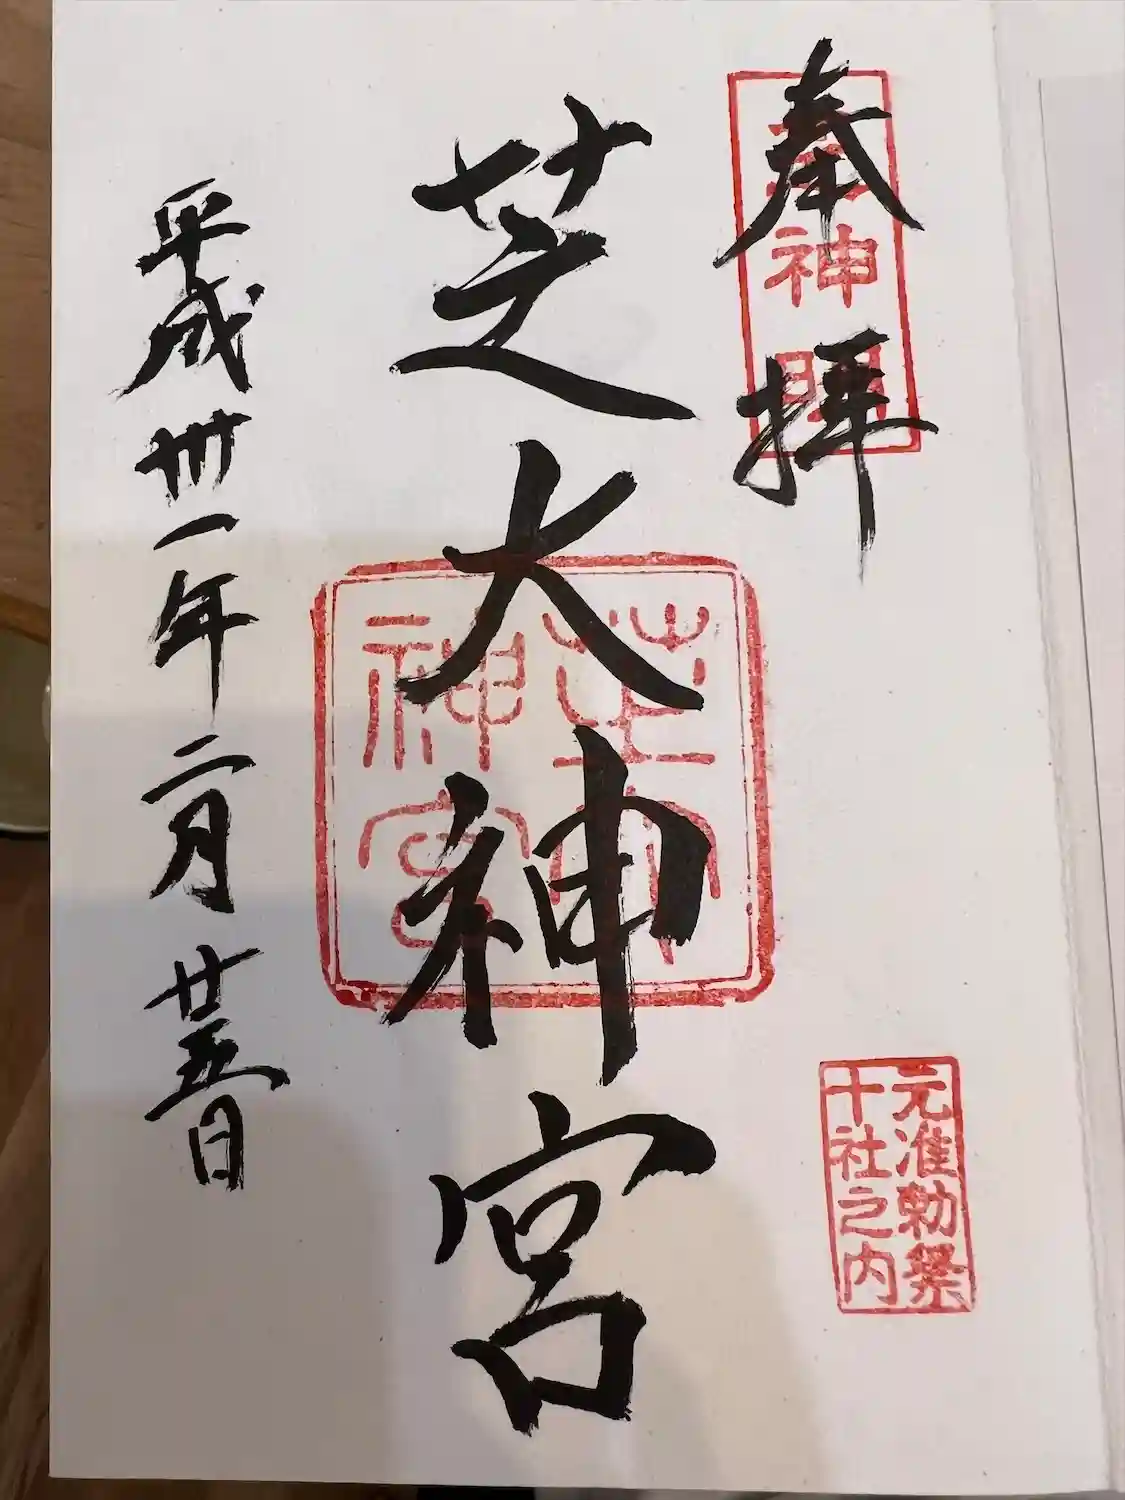 奉拝
神明
元准勅祭
十社之内
芝大神宮
芝大
神宮
平成卅一年二月廿五日